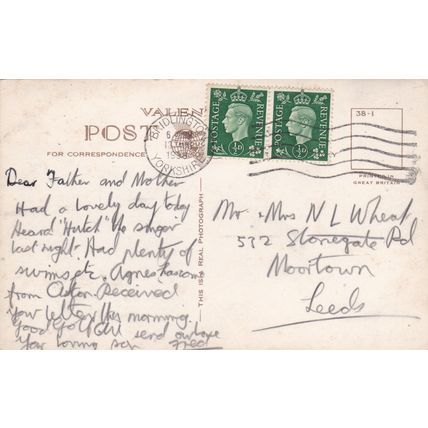 VALEN
POST
FOR CORRESPONDENCE
BRIDLINGTON
YORKSHIRE
POSTAGE REVENUE
½D
POSTAGE REVENUE
½D
38-1
PRINTED IN
GREAT BRITAIN
THIS IS A REAL PHOTOGRAPH
Dear Father and Mother
Had a lovely day today
Heard "Hutch" the singer
last night. Had plenty of
swims etc. Agnes has come
from Received
your letter this morning.
Good all send our love
Your loving son Fred
Mr. & Mrs N L Wheat
532 Stonegate Rd
Moortown
Leeds